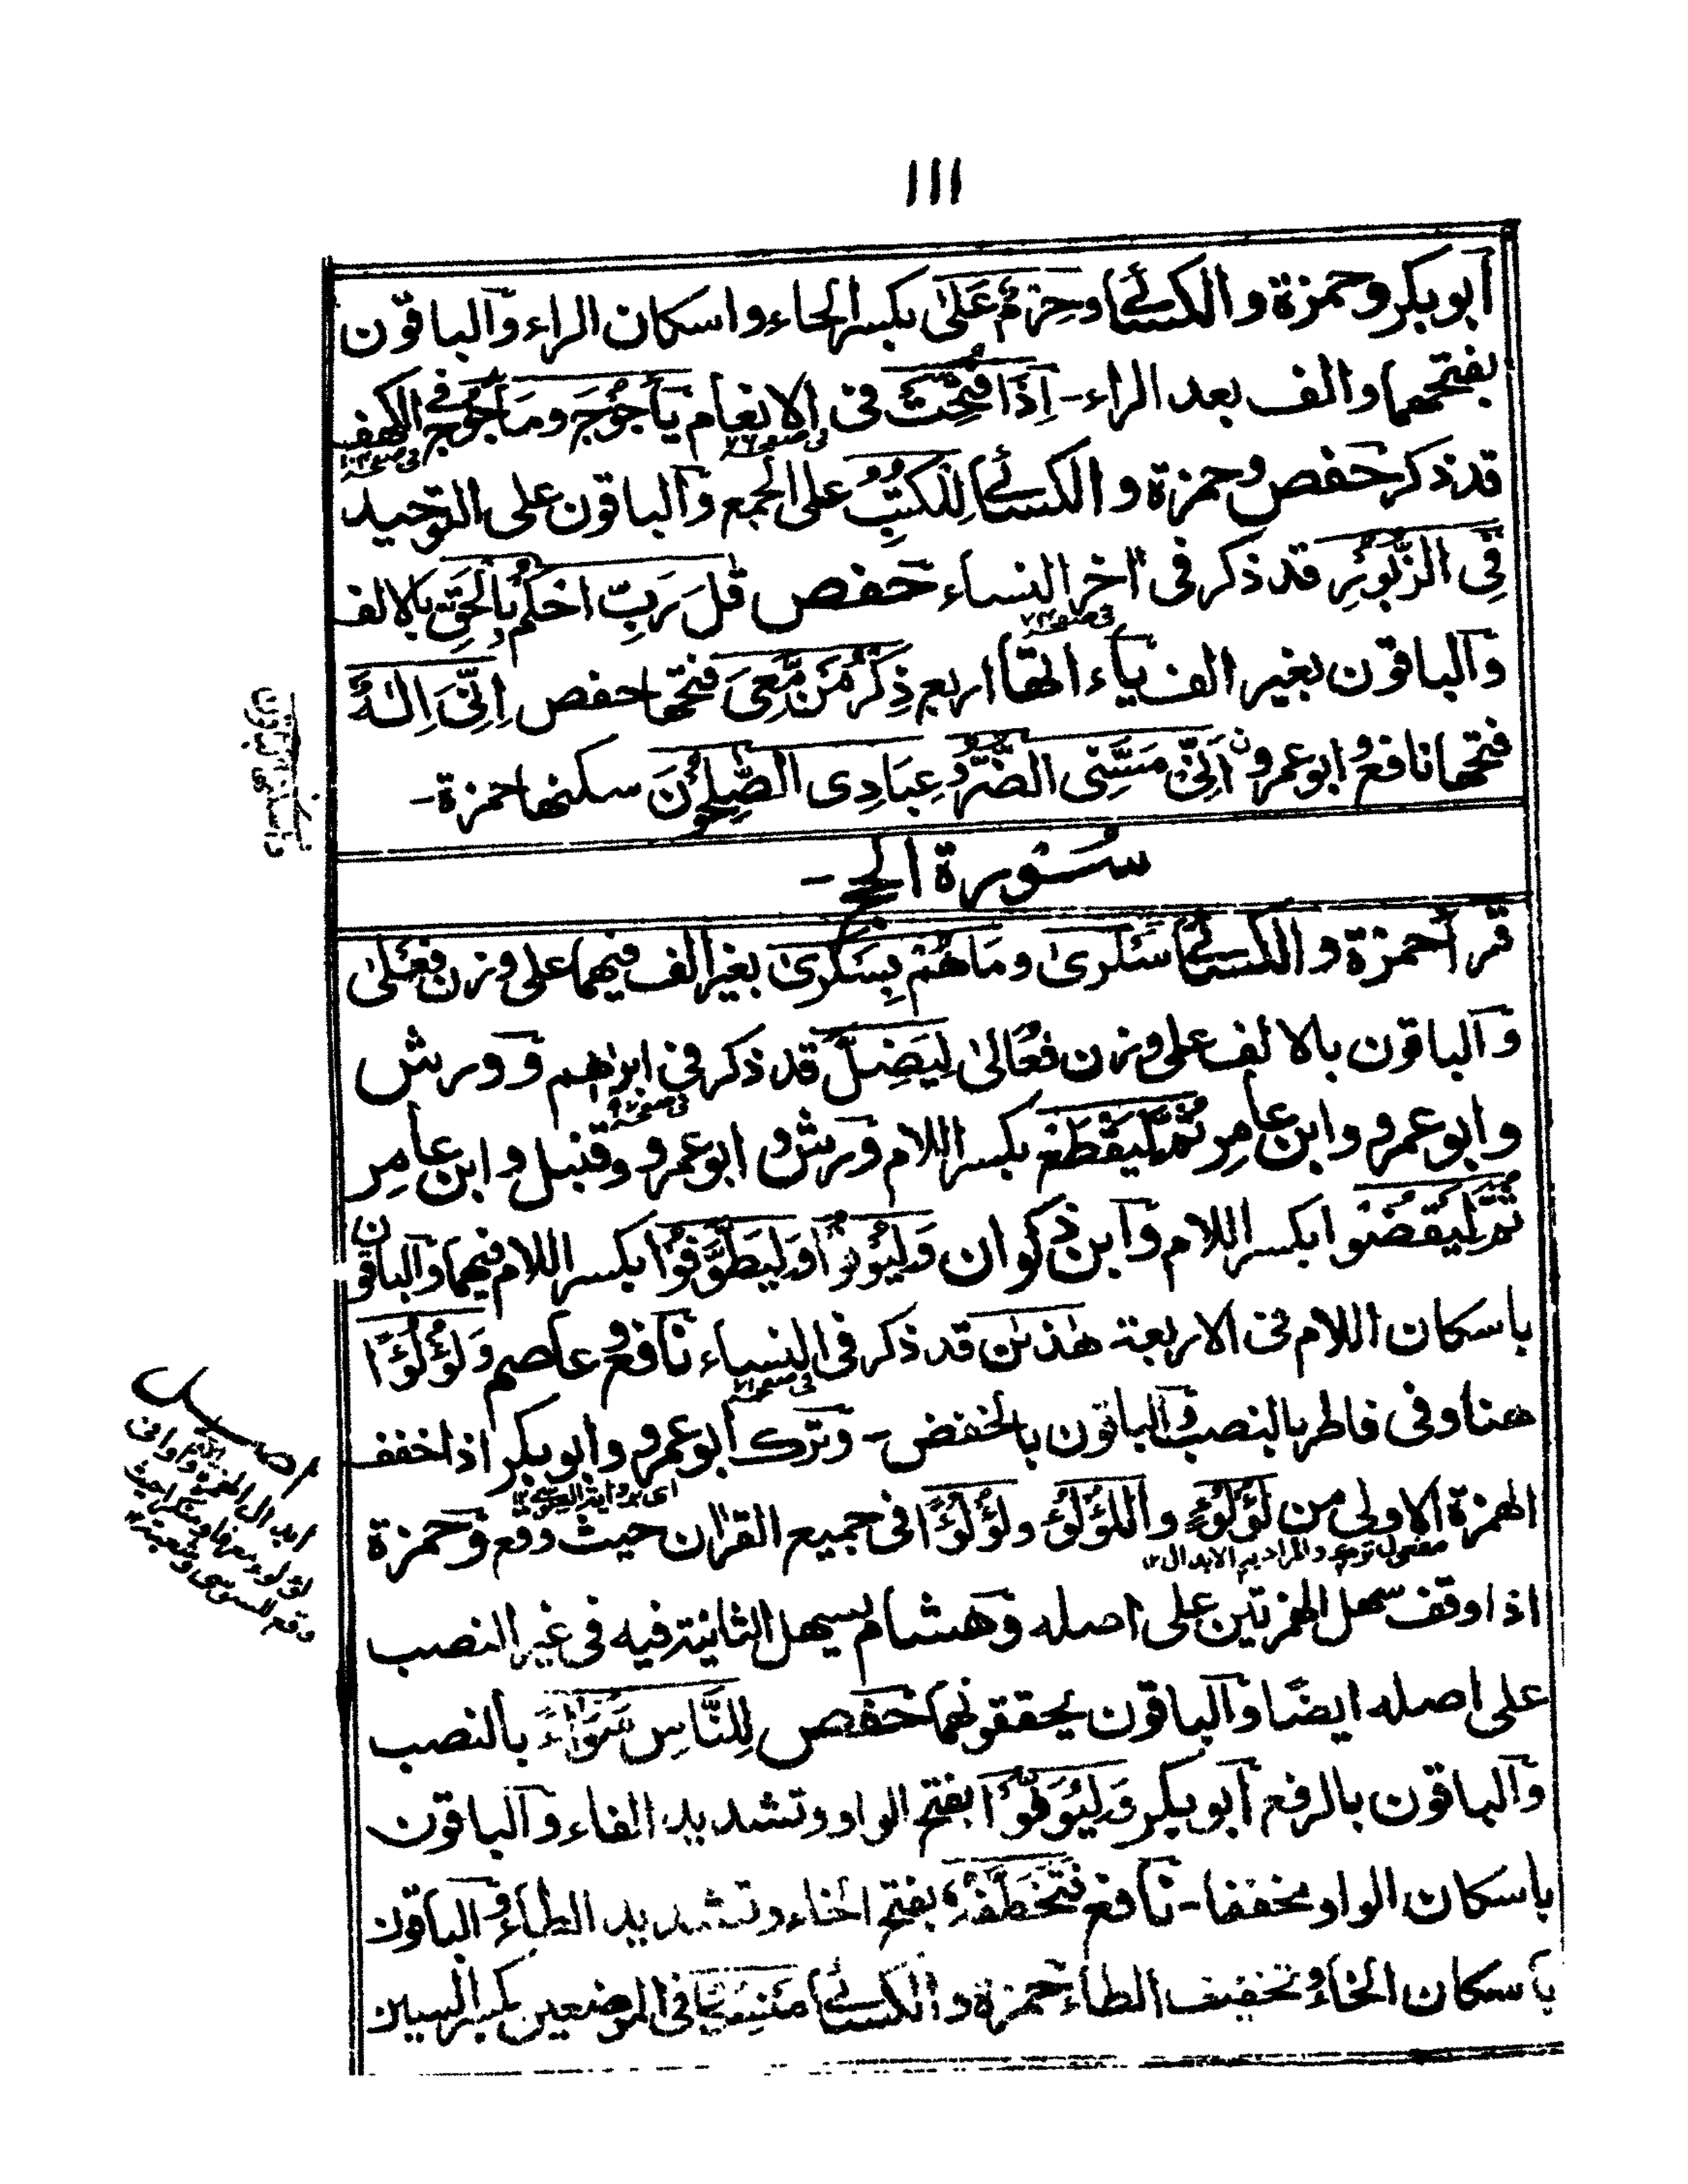 ١١١
ابوبكر وحمزة والكسائى وحِرْمٌ عَلىٰ بكسر الحاء واسكان الراء والباقون
بفتحهما والف بعد الراء - اِذَا فُتِحَتْ فى الانعام يَأْجُوْجُ ومَأْجُوْجُ فى الكهف
فى صفحه ٧٦
قد ذكر حفص وحمزة والكسائى لِلْكُتُبِ على الجمع والباقون على التوحيد
فِى الزَّبُوْرِ قد ذكر فى اٰخر النساء حفص قٰلَ رَبِّ احْكُمْ بِالْحَقِّ بالالف
والباقون بغير الف ياء اتها اربع ذِكْرُ مَنْ مَّعِىَ فتحها حفص اِنِّىَ اِلٰهٌ
فتحها نافع وابو عمرو اَنِّىْ مَسَّنِىَ الضُّرُّ وعِبَادِى الصّٰلِحُوْنَ سكنها حمزة -
سُوْرة الحج -
قرأ حمزة والكسائى سَكْرىٰ وما هُمْ بِسَكْرىٰ بغير الف فيهما على وزن فَعْلىٰ
والباقون بالالف على وزن فُعَالىٰ لِيَضِلَّ قد ذكر فى ابرٰهيم وورش
وابو عمرو وابن عامِر ثُمَّ لِيَقْطَعْ بكسر اللام ورش وابو عمرو وقنبل وابن عامِر
ثُمَّ لِيَقْضُوْا بكسر اللام وابن ذكوان وَلِيُوْفُوْا وَلِيَطَّوَّفُوْا بكسر اللام فيهما والباقون
باسكان اللام فى الاربعة هٰذٰنِ قد ذكر فى النساء نافع وعاصم وَلُؤْلُؤًا
هنا وفى فاطر بالنصب والباقون بالخفض - وترك ابو عمرو وابوبكر اذا خفف
الهمزة الاولى من لُؤْلُؤٍ واللُّؤْلُؤُ ولُؤْلُؤًا فى جميع القراٰن حيث وقع وحمزة
مفعول ترك والمراد به الابدال ١٢
اذا وقف سهل الهمزتين على اصله وهشام يسهل الثانية فيه فى غير النصب
على اصله ايضًا والباقون يحققونهما حفص لِلنَّاسِ سَوَاۤءً بالنصب
والباقون بالرفع ابوبكر وَلِيُوَفُّوْا بفتح الواو وتشديد الفاء والباقون
باسكان الواو مخففا - نافع فَتَخَطَّفُهُ بفتح الخاء وتشديد الطاء والباقون
باسكان الخاء وتخفيف الطاء حمزة والكسائى مَنْسِكًا فى الموضعين بكسر السين